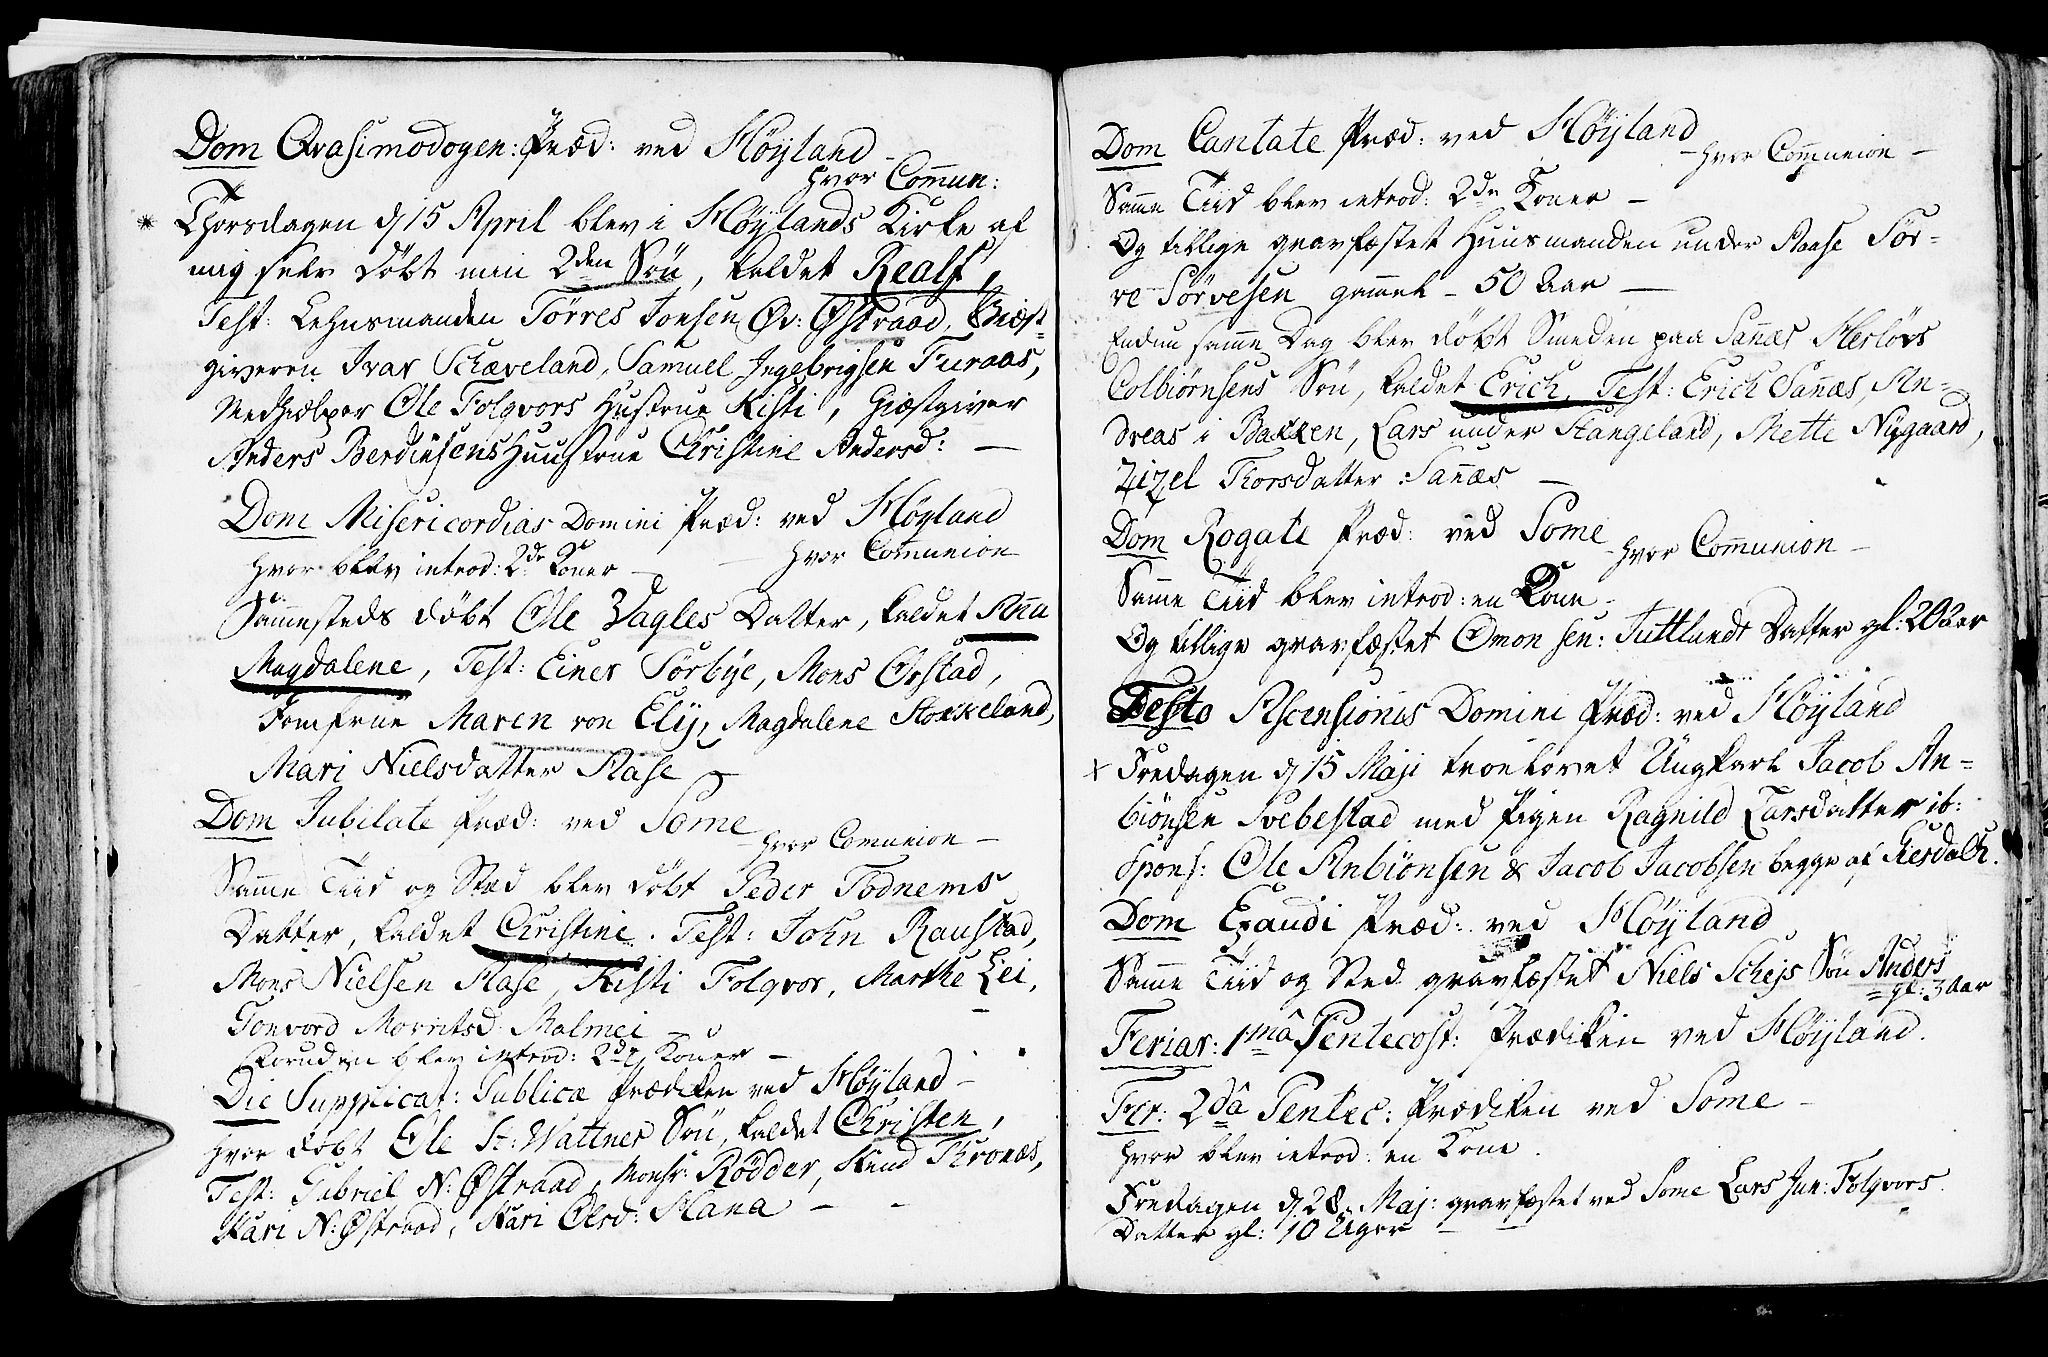 Dom Qvasimodogen: Præd: ved Höÿland
hvor Comun:
* Thorsdagen d 15 April blev i Höÿlands Kirke af
mig selv döbt min 2den Sön, kaldet Realf,
Test: Lehnsmanden Törres Jonsen Öv: Östraad, Giæst-
giveren Ivar Schæveland, Samuel Ingebrigsen Furaas,
Medhielper Ole Folqvors Hustrue Kisti, Giæstgiver
Anders Berdinsens Huustrue Christine Andersd: —
Dom Misericordias Domini Præd: ved Höÿland
hvor blev introd: 2de Koner — hvor Comunion
Sammesteds döbt Ole Vagles Datter, kaldet Anna
Magdalene, Test: Einer Sörbÿe, Mons Orstad,
Jomfrue Maren von Elÿ, Magdalene Stokkeland,
Mari Nielsdatter Hase
Dom Jubilate Præd: ved Some
hvor Comunion —
Samme Tiid og Sted blev döbt Peder Todnems
Datter, kaldet Christine. Test: John Raustad,
Mons Nielsen Hase, Kisti Folqvor, Marthe Lei,
Gonvord Morritsd: Malmei —
Foruden blev introd: 2de Koner —
Die Supplicat: Publicæ Prædiken ved Höÿland —
hvor döbt Ole St: Wattnes Sön, kaldet Christen,
Test: Gabriel N: Östraad, Monsr: Rödder, Knud Thronæs,
Kari N: Östraad, Kari Olsd: Hana — —
Dom Cantate Præd: ved Höÿland
— hvor Comunion —
Samme Tiid blev introd: 2de Koner —
Og tillige gravfæstet Huusmanden under Haase Sör-
ve Sörvesen gammel — 50 Aar —
Endnu samme Dag blev döbt Smeden paa Sannæs Herlövs
Colbiörnsens Sön, kaldet Erich, Test: Erich Sannæs, An-
dreas i Bakken, Lars under Stangeland, Mette Nÿgaard,
Zizel Thorsdatter Sannæs —
Dom Rogate Præd: ved Some
— hvor Comunion —
Samme Tiid blev introd: en Kone —
Og tillige gravfæstet Omon sen: Juttlands Datter gl: 20 Aar
Festo Ascensionis Domini Præd: ved Höÿland
x Fredagen d 15 Maji trolovet Ungkarl Jacob An-
biönsen Svebestad med Pigen Ragnild Larsdatter ib:
Spons: Ole Anbiönsen & Jacob Jacobsen begge af Giesdalk.
Dom Exaudi Præd: ved Höÿland
Samme Tiid og Sted gravfæstet Niels Schejs Sön Anders
= gl: 3 Aar
Feriar: 1mâ Pentecost: Prædiken ved Höÿland.
Fer: 2dâ Pentec: Prædiken ved Some —
hvor blev introd: en Kone.
Fredagen d 28 Maj: gravfæstet ved Some Lars Jun: Folqvors
Datter gl: 10 Uger —